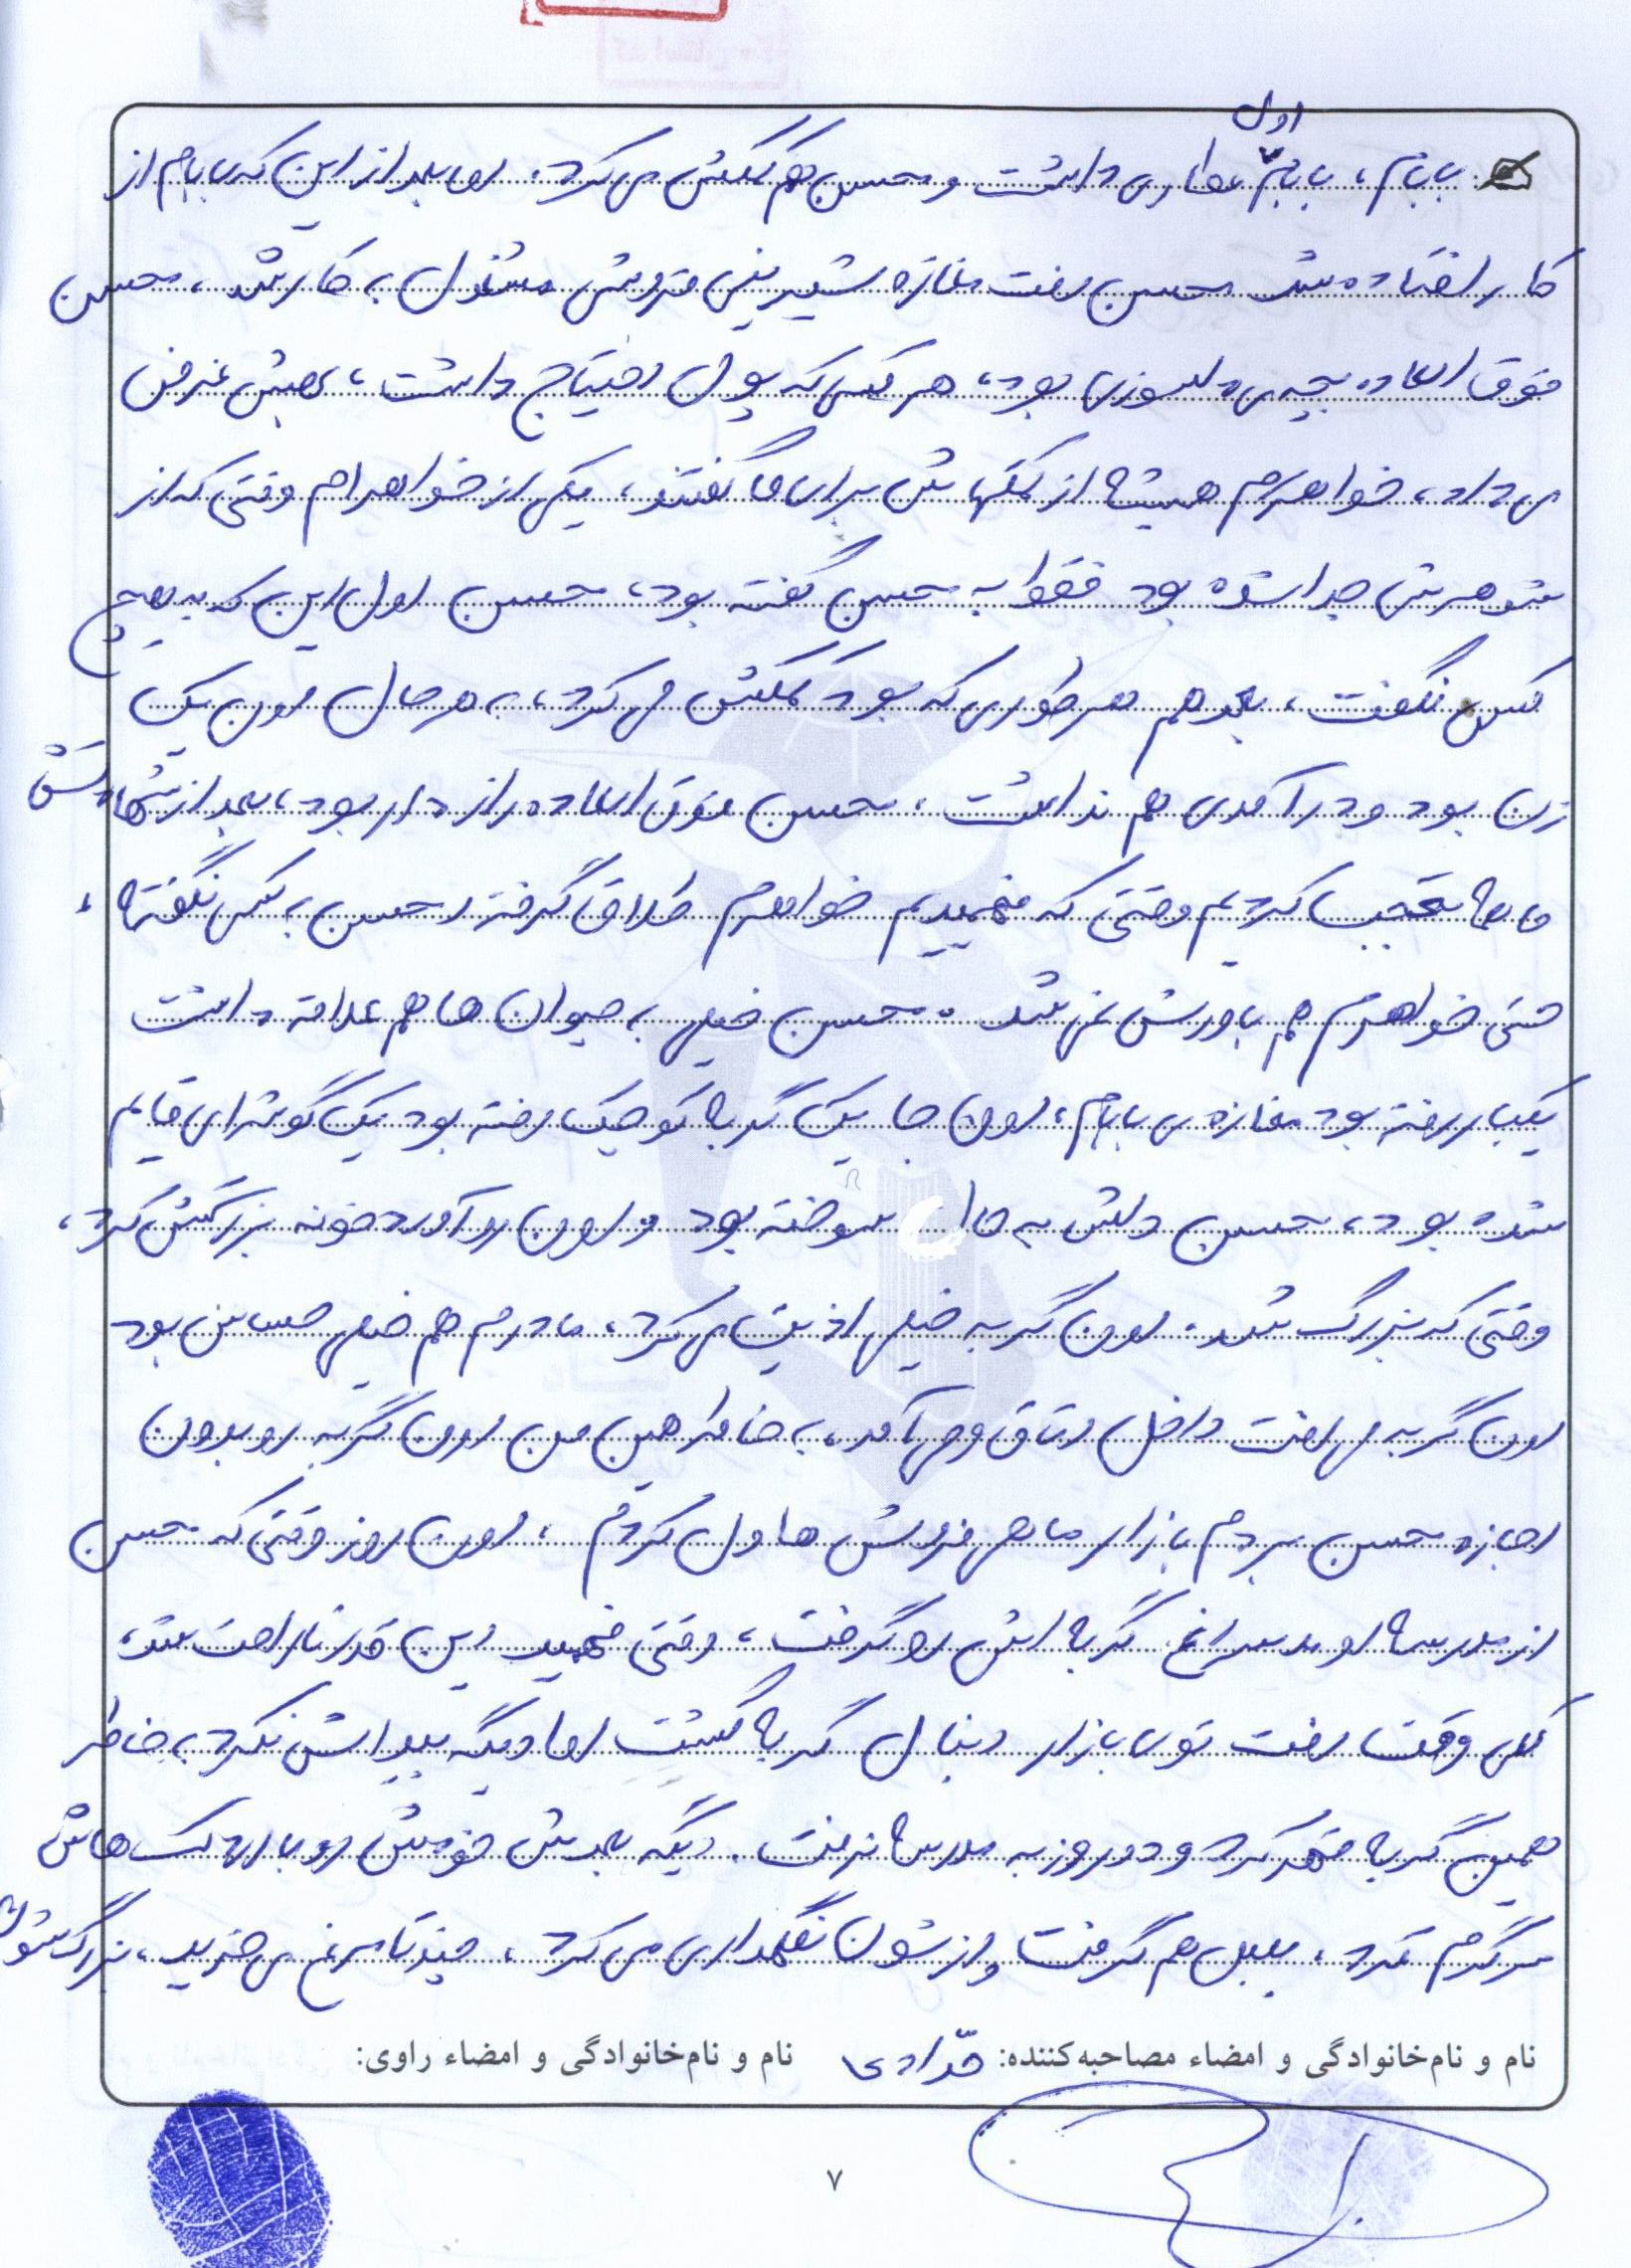 اول
بابام، بابام عطاری داشت و محسن هم کمکش می‌کرد. اما بعد از این که بابام از
کار افتاده شد محسن رفت مغازه شیرینی فروشی مشغول به کار شد، محسن
فوق العاده بچه‌ی دلسوزی بود، هر کسی که پول احتیاج داشت، بهش قرض
می‌داد، خواهرم همیشه از کمکهاش برای ما گفتند، یکی از خواهرام وقتی که از
شوهرش جدا شده بود فقط به محسن گفته بود، محسن اول این که به هیچ
کس نگفت، بعد هم هر طوری که بود کمکش می‌کرد، به هر حال اون یک
زن بود و درآمدی هم نداشت، محسن فوق العاده راز دار بود، بعد از شهادتش
ما ها تعجب کردیم وقتی که فهمیدیم خواهرم طلاق گرفته و محسن به کسی نگفته،
حتی خواهرم هم باورش نمی‌شد. محسن خیلی به حیوان ها هم علاقه داشت
یکبار رفته بود مغازه‌ی بابام، اون جا یک گربه کوچیک رفته بود یک گوشه‌ای قایم
شده بود، محسن دلش به حال سوخته بود و اون رو آورد خونه بزرگش کرد،
وقتی که بزرگ شد. اون گربه خیلی اذیت می‌کرد، مادرم هم خیلی حساس بود
اون گربه می‌رفت داخل اتاق و می‌آمد، به خاطر همین من اون گربه رو بدون
اجازه محسن بردم بازار ماهی فروش ها ول کردم، اون روز وقتی که محسن
از مدرسه اومد سراغ گربه اش رو گرفت، وقتی فهمید این قدر ناراحت شد،
کلی وقت رفت توی بازار دنبال گربه گشت اما دیگه پیداش نکرد، به خاطر
همین گربه قهر کرد و دو روز به مدرسه نرفت. دیگه بعدش خودش رو با اردک هاش
سرگرم کرد، بلبل هم گرفت و ازشون نگهداری می‌کرد، چند تا مرغ می‌خرید، بزرگ شون
نام و نام‌خانوادگی و امضاء مصاحبه‌کننده: نام و نام‌خانوادگی و امضاء راوی:
۷